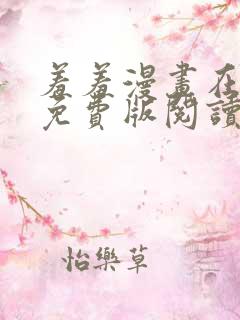 羞羞漫畫在
免費版閱讀
怡樂草